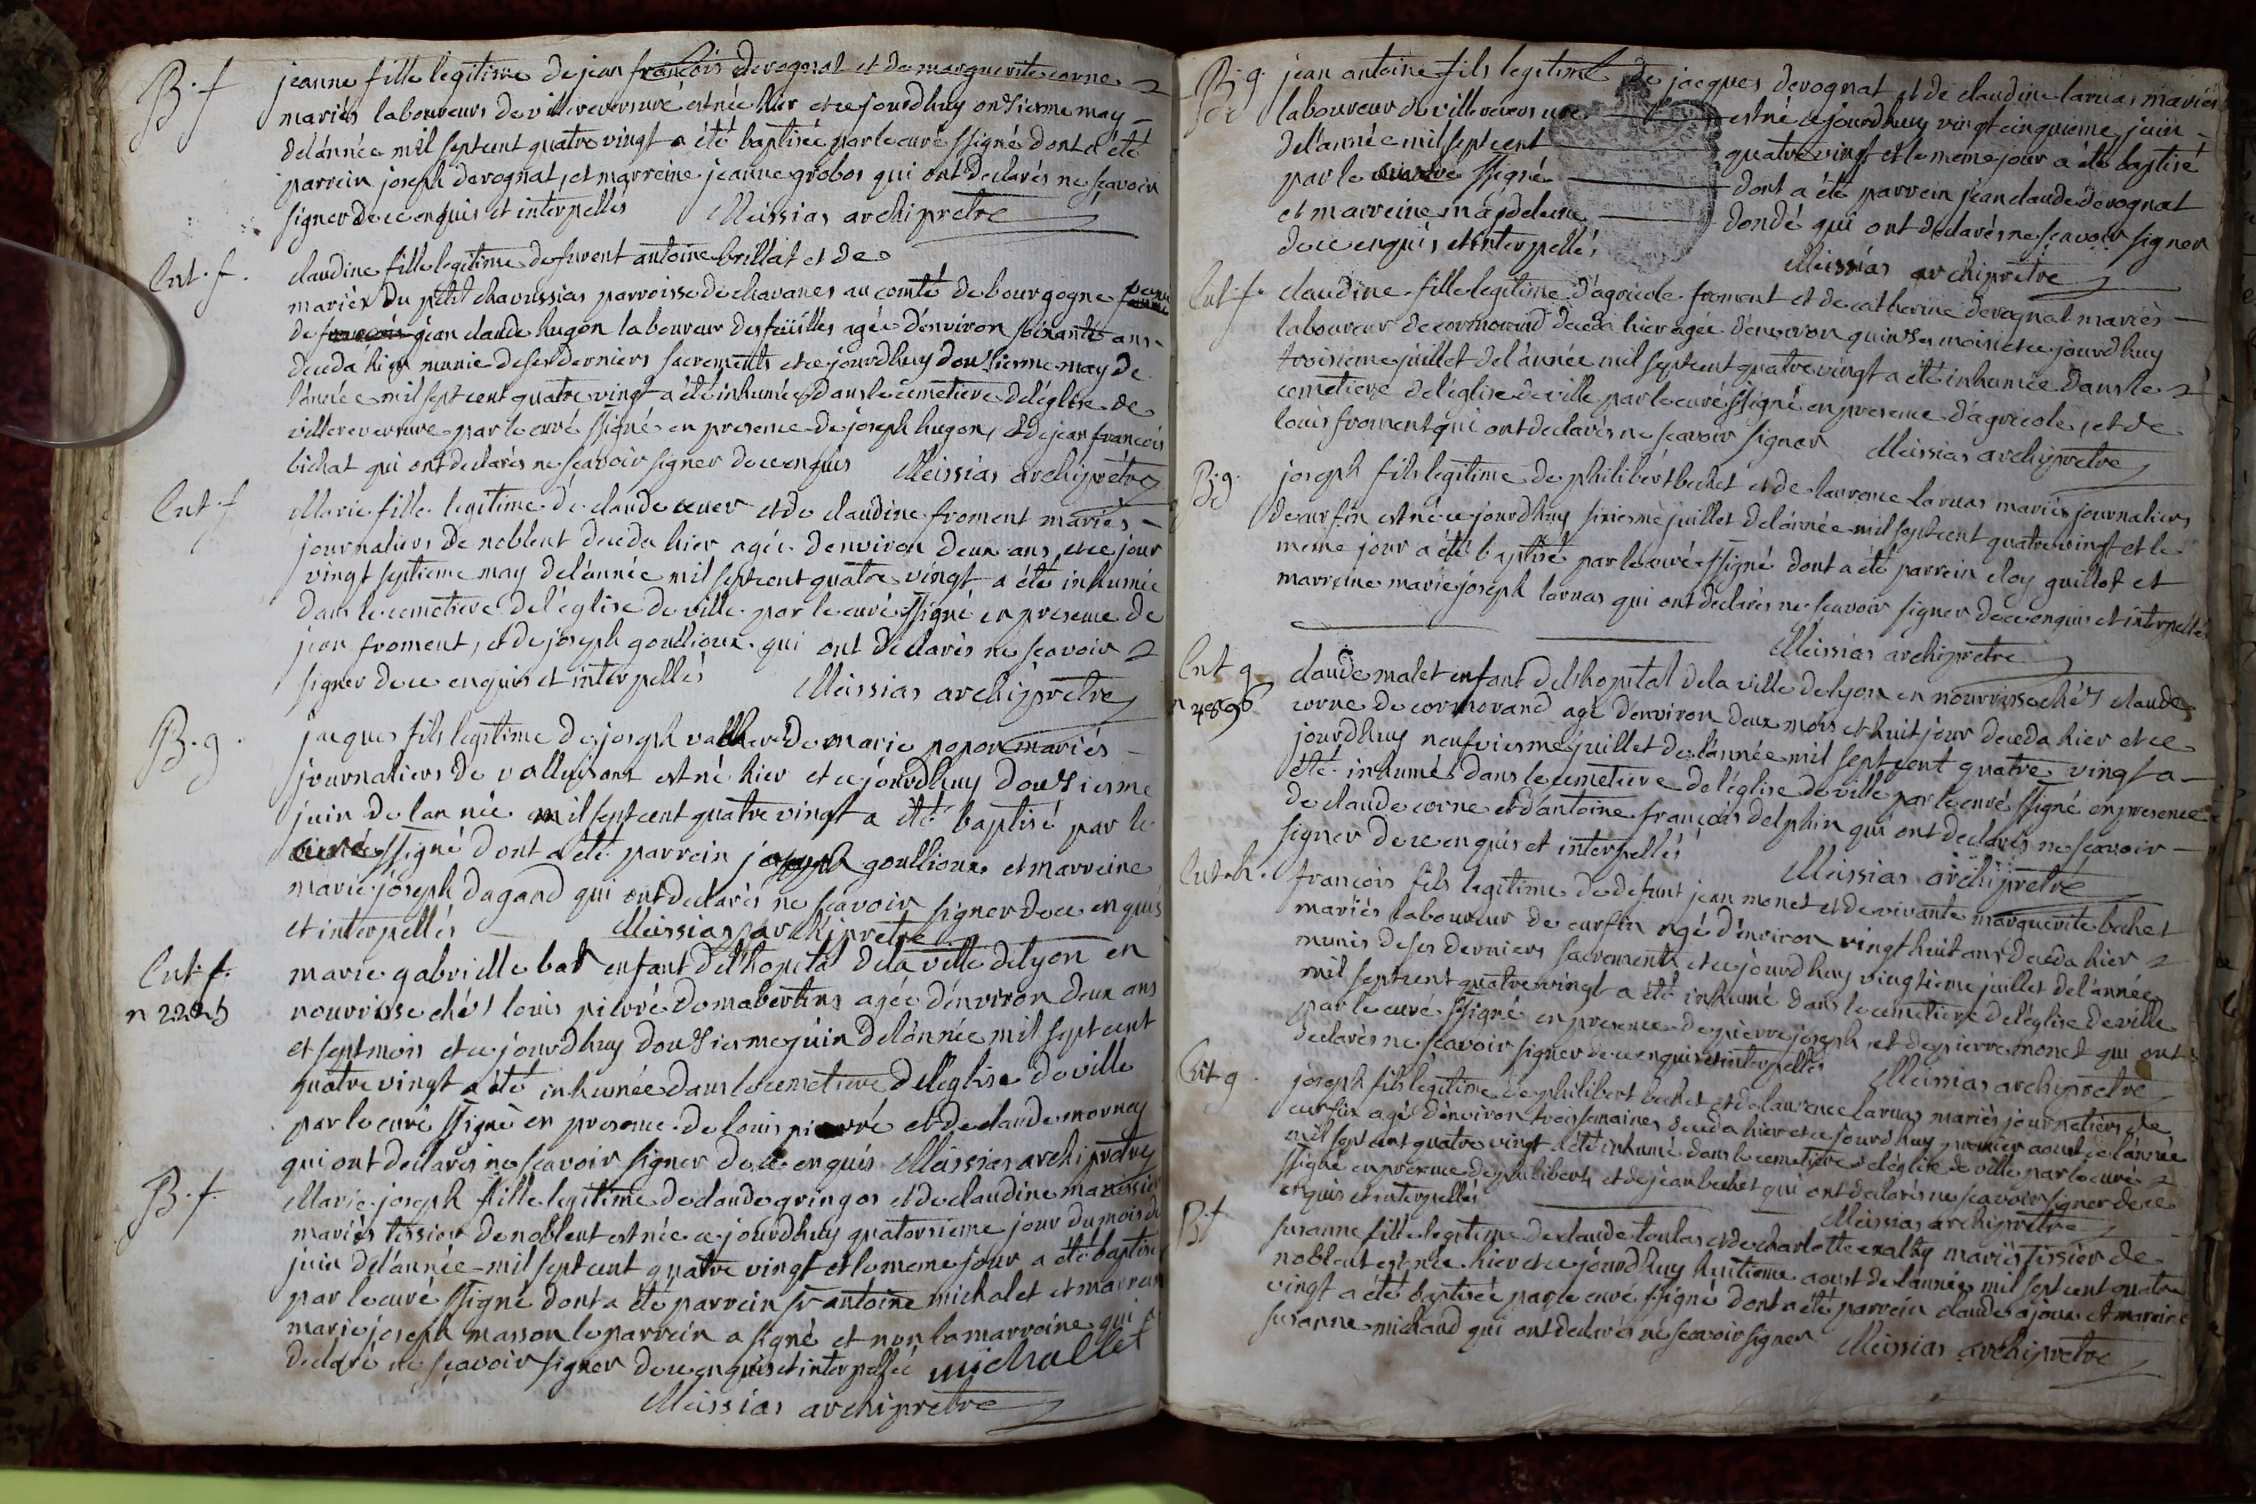 B. f
jeanne fille legitime de jean françois derognat et de marguerite corne
mariés laboureurs de villereversure est née hier et ce jourdhuy onsieme may
de lánnée mil sept cent quatre vingt a été baptisée par le curé ssigné dont a été
parrein joseph derognat, et marreine jeanne grobos qui ont declarés ne scavoir
signer de ce enquis et interpellés Meissias archiprêtre
Ent. f.
claudine fille legitime de furent antoine brillat et de
mariés du petit chavussias parroisse de chavanes au comté de bourgogne femme
de jean claude hugon laboureur des feüilles agée d'environ soixante ans
deceda hier munie de ses derniers sacrements et ce jourdhuy dousieme may de
lánnée mil sept cent quatre vingt a été inhumée dans le cemetiere de l'église de
villereversure par le curé ssigné en presence de joseph hugon, et de jean françois
bichat qui ont declarés ne scavoir signer de ce enquis Meissias archiprêtre
Ent. f
Marie fille legitime de claude cuer et de claudine froment mariés
journaliers de noblent deceda hier agée denviron deux ans et ce jour
vingt septieme may de lánnée mil sept cent quatre vingt a été inhumée
dans le cemetiere de l'église de ville par le curé ssigné en presence de
jean froment, et de joseph goullioux qui ont declarés ne scavoir
signer de ce enquis et interpellés Meissias archiprêtre
B. g.
jacques fils legitime de joseph vallier de marie popon mariés
journaliers de valleisont est né hier et ce jourdhuy dousieme
juin de lannée mil sept cent quatre vingt a été baptisé par le
curé ssigné dont a été parrein joseph goullioux et marreine
marie joseph dagand qui ont declarés ne scavoir signer de ce enquis
et interpellés Meissias archiprêtre
Ent. f.
marie gabrielle bat enfant de l'hopital de la ville de lyon en
n 2225
nourrisse chés louis pierré de mabertins agée d'environ deux ans
et sept mois et ce jourdhuy dousieme juin de lánnée mil sept cent
quatre vingt a été inhumée dans le cemetiere de l'eglise de ville
par le curé ssigné en presence de louis pierré et de claude mornay
qui ont declarés ne scavoir signer de ce enquis Meissias archiprêtre
B. f.
Marie joseph fille legitime de claude gringos et de claudine manissier
mariés tissier de noblent est née ce jourdhuy quatorsieme jour du mois de
juin de lánnée mil sept cent quatre vingt et le meme jour a été baptisée
par le curé ssigné dont a été parrein sr antoine michalet et marreine
marie joseph masson le parrein a signé et non la marreine qui a
declaré ne scavoir signer de ce enquise et interpellée michallet
Meissias archiprêtre
B. g.
jean antoine fils legitime de jacques derognat et de claudine laruas mariés
laboureur de villereversure est né ce jourdhuy vingt cinquieme juin
de l'année mil sept cent quatre vingt et le meme jour a été baptisé
par le curé ssigné dont a été parrein jean claude derognat
et marreine magdeleine dondé qui ont declarés ne scavoir signer
de ce enquis et interpellés
Meissias archiprêtre
Ent. f.
claudine fille legitime d'agricole froment et de catherine derognat mariés
laboureur de cormorand deceda hier agée d'environ quinse mois et ce jourdhuy
troisieme juillet de lánnée mil sept cent quatre vingt a été inhumée dans le
cemetiere de l'église de ville par le curé ssigné en presence d'agricole, et de
louis froment qui ont declarés ne scavoir signer Meissias archiprêtre
B. g.
joseph fils legitime de philibert bechet et de laurence laruas mariés journaliers
de curfin est né ce jourdhuy sixieme juillet de lánnée mil sept cent quatre vingt et le
meme jour a été baptisé par le curé ssigné dont a été parrein eloy guillot et
marreine marie joseph laruas qui ont declarés ne scavoir signer de ce enquis et interpellés
Meissias archiprêtre
Ent g.
claude malet enfant de l'hopital de la ville de lyon en nourrisse chés claude
n 4896
corne de cormorand agé d'environ deux mois et huit jour deceda hier et ce
jourdhuy neufvieme juillet de lánnée mil sept cent quatre vingt a
été inhumé dans le cemetiere de l'église de ville par le curé ssigné en presence
de claude corne et d'antoine françois delphin qui ont declarés ne scavoir
signer de ce enquis et interpellés
Meissias archiprêtre
Ent. h.
françois fils legitime de defunt jean monet et de vivante marguerite bechet
mariés laboureur de curfin agé d'environ vingt huit ans deceda hier
munis de ses derniers sacrements et ce jourdhuy vingtieme juillet de l'année
mil sept cent quatre vingt a été inhumé dans le cemetiere de l'église de ville
par le curé ssigné en presence de pierre joseph, et de pierre monet qui ont
declarés ne scavoir signer de ce enquis et interpellés Meissias archiprêtre
Ent g.
joseph fils legitime de philibert bechet et de laurence laruas mariés journaliers de
curfin agé d'environ trois semaines deceda hier et ce jourdhuy premier aoust de lánnée
mil sept cent quatre vingt a été inhumé dans le cemetiere de l'église de ville par le curé
ssigné en presence de philibert, et de jean bechet qui ont declarés ne scavoir signer de ce
enquis et interpellés
Meissias archiprêtre
B. f
susanne fille legitime de claude toulas et de charlotte mariés tissier de
noblent est née hier et ce jourdhuy huitieme aoust de lánnée mil sept cent quatre
vingt a été baptisée par le curé ssigné dont a été parrein claude ajoux et marreine
susanne michaud qui ont declarés ne scavoir signer Meissias archiprêtre